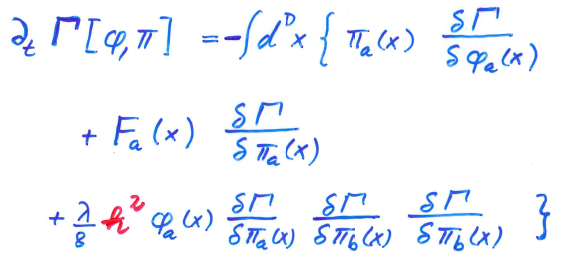 ∂ₜ Γ[φ,π] = -∫dᴰx { πₐ(x) δΓ/δφₐ(x)
+ Fₐ(x) δΓ/δπₐ(x)
+ λ/8 ℏ² φₐ(x) δΓ/δπₐ(x) δΓ/δπ_b(x) δΓ/δπ_b(x) }